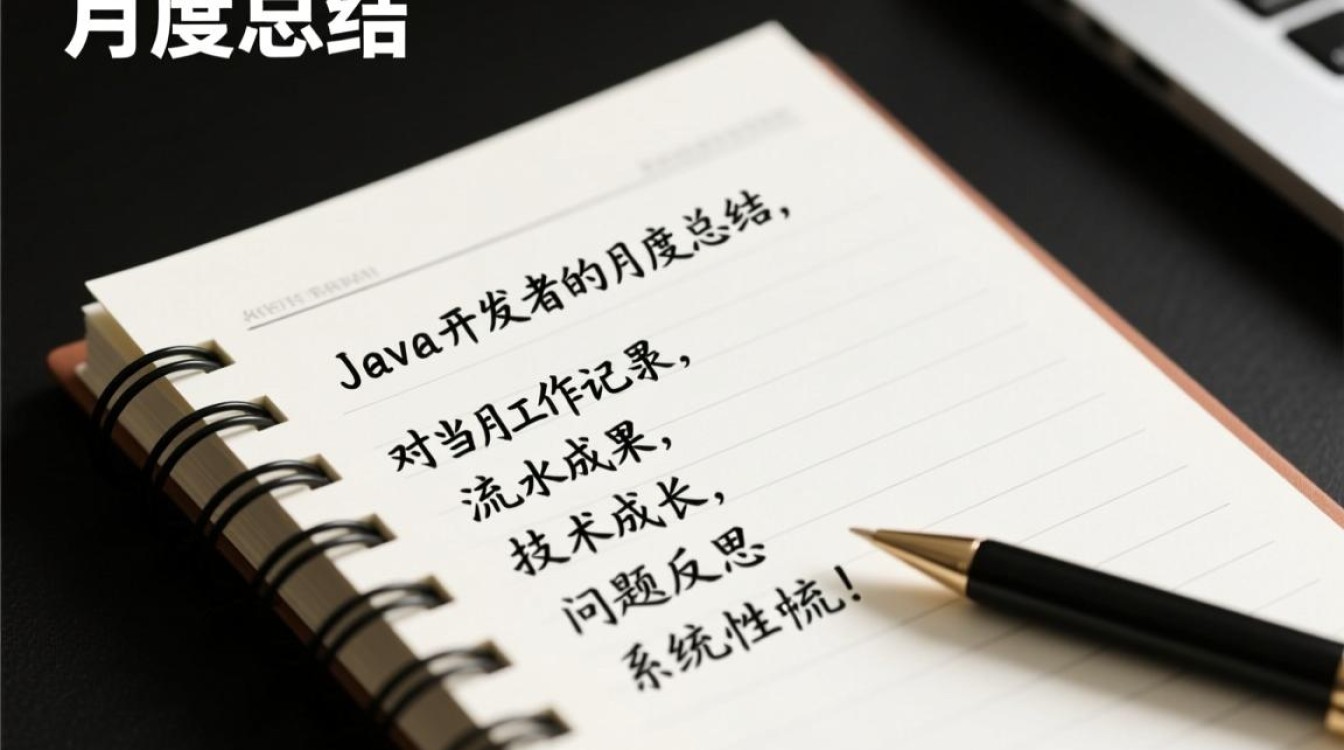 月度总结
Java开发者的月度总结,
对当月工作记录,
流水成果,
技术成长,
问题反思
系统性梳!